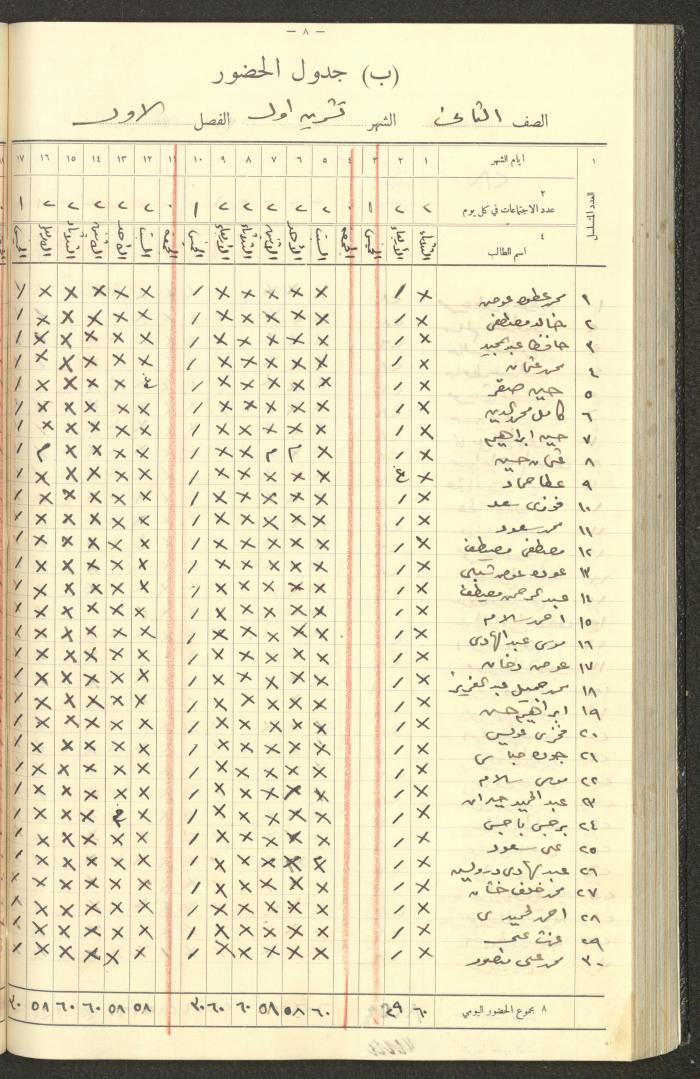 — ٨ —
(ب) جدول الحضور
الصف الثامن الشهر تشرين اول الفصل الاول
١ ايام الشهر ١ ٢ ٣ ٤ ٥ ٦ ٧ ٨ ٩ ١٠ ١١ ١٢ ١٣ ١٤ ١٥ ١٦ ١٧
العدد المتسلسل
٢
عدد الاجتماعات في كل يوم ٢ ٢ ١ ٠ ٢ ٢ ٢ ٢ ٢ ١ ٠ ٢ ٢ ٢ ٢ ٢ ١
٤
اسم الطالب الثلاثاء الأربعاء الخميس الجمعة السبت الأحد الاثنين الثلاثاء الأربعاء الخميس الجمعة السبت الأحد الاثنين الثلاثاء الأربعاء الخميس
١ محمد عطوه عوض
٢ خالد مصطفى
٣ حافظ عبد المجيد
٤ محمد عثمان
٥ حسين صقر
٦ كامل محمد الدين
٧ حسين ابراهيم
٨ عثمان حسين
٩ عطا حماد
١٠ فوزي سعد
١١ محمد سعود
١٢ مصطفى مصطفى
١٣ عوده عوض شبلي
١٤ عبد الرحمن مصطفى
١٥ احمد سلام
١٦ موسى عبد الهادي
١٧ عوض دخان
١٨ محمد جميل عبد العزيز
١٩ ابراهيم حسن
٢٠ فخري عويس
٢١ جوده
٢٢ موسى سلام
٢٣ عبد الحميد
٢٤ برجس
٢٥ علي سعود
٢٦ عبد الهادي درويش
٢٧ محمد خلف
٢٨ احمد
٢٩ عزت علي
٣٠ محمد علي منصور
٨ مجموع الحضور اليومي ٦٠ ٢٩ ٦٠ ٥٨ ٥٨ ٦٠ ٦٠ ٣٠ ٥٨ ٥٨ ٦٠ ٦٠ ٥٨ ٣٠